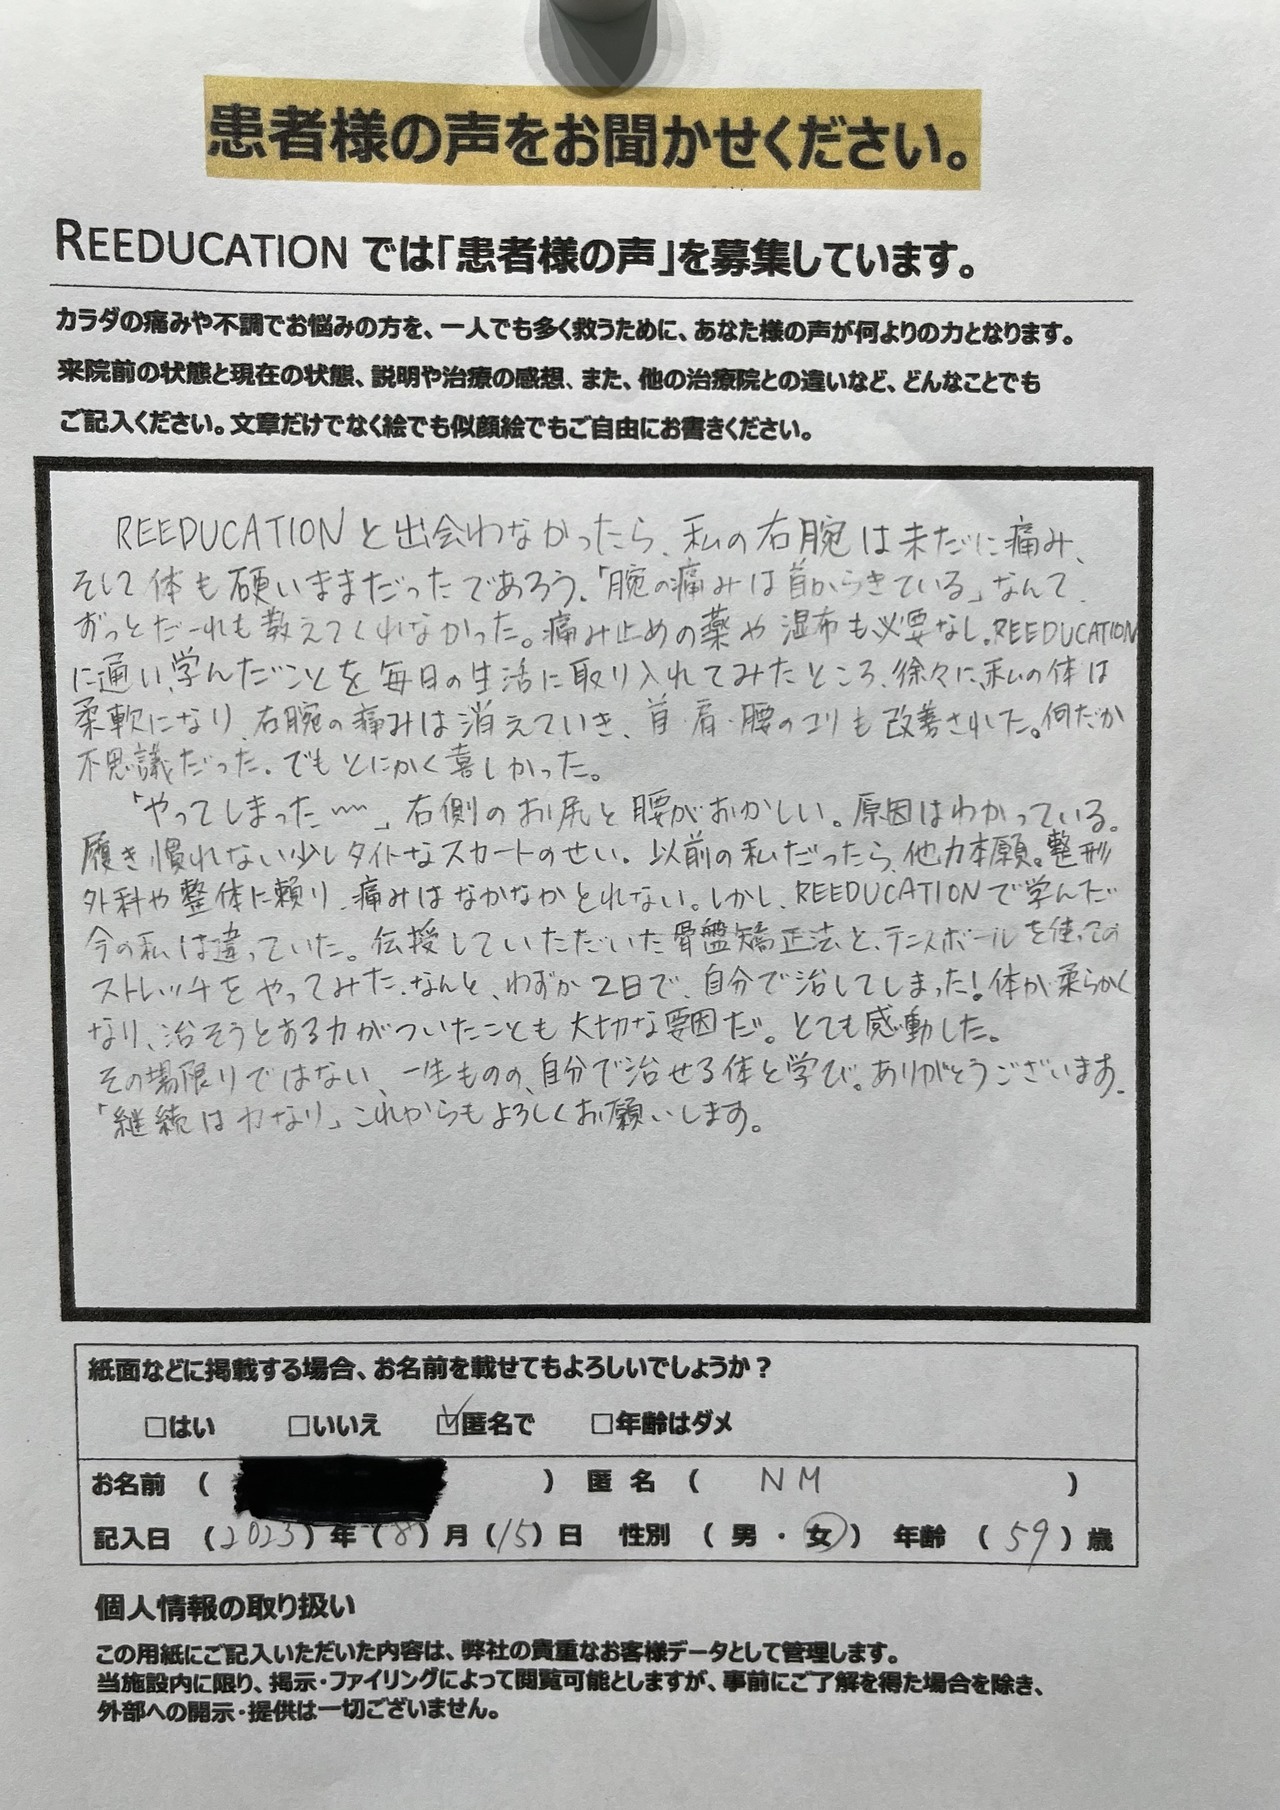 患者様の声をお聞かせください。
REEDUCATIONでは「患者様の声」を募集しています。
カラダの痛みや不調でお悩みの方を、一人でも多く救うために、あなた様の声が何よりの力となります。
来院前の状態と現在の状態、説明や治療の感想、また、他の治療院との違いなど、どんなことでも
ご記入ください。文章だけでなく絵でも似顔絵でもご自由にお書きください。
REEDUCATIONと出会わなかったら、私の右腕は未だに痛み、
そして体も硬いままだったであろう。「腕の痛みは首からきている」なんて、
ずっとだーれも教えてくれなかった。痛み止めの薬や湿布も必要なし。REEDUCATION
に通い、学んだことを毎日の生活に取り入れてみたところ、徐々に、私の体は
柔軟になり、右腕の痛みは消えていき、首・肩・腰のコリも改善された。何だか
不思議だった。でもとにかく喜しかった。
「やってしまった〰」右側のお尻と腰がおかしい。原因はわかっている。
履き慣れない少しタイトなスカートのせい。以前の私だったら、他力本願。整形
外科や整体に頼り、痛みはなかなかとれない。しかし、REEDUCATIONで学んだ
今の私は違っていた。伝授していただいた骨盤矯正法と、テニスボールを使っての
ストレッチをやってみた。なんと、わずか2日で、自分で治してしまった!体が柔らかく
なり、治そうとある力がついたことも大切な要因だ。とても感動した。
その場限りではない、一生ものの、自分で治せる体と学び。ありがとうございます。
「継続は力なり」これからもよろしくお願いします。
紙面などに掲載する場合、お名前を載せてもよろしいでしょうか?
□はい □いいえ ☑匿名で □年齢はダメ
お名前 ( ) 匿名 ( NM )
記入日 (2023)年(8)月(15)日 性別 (男・女) 年齢 (59)歳
個人情報の取り扱い
この用紙にご記入いただいた内容は、弊社の貴重なお客様データとして管理します。
当施設内に限り、掲示・ファイリングによって閲覧可能としますが、事前にご了解を得た場合を除き、
外部への開示・提供は一切ございません。